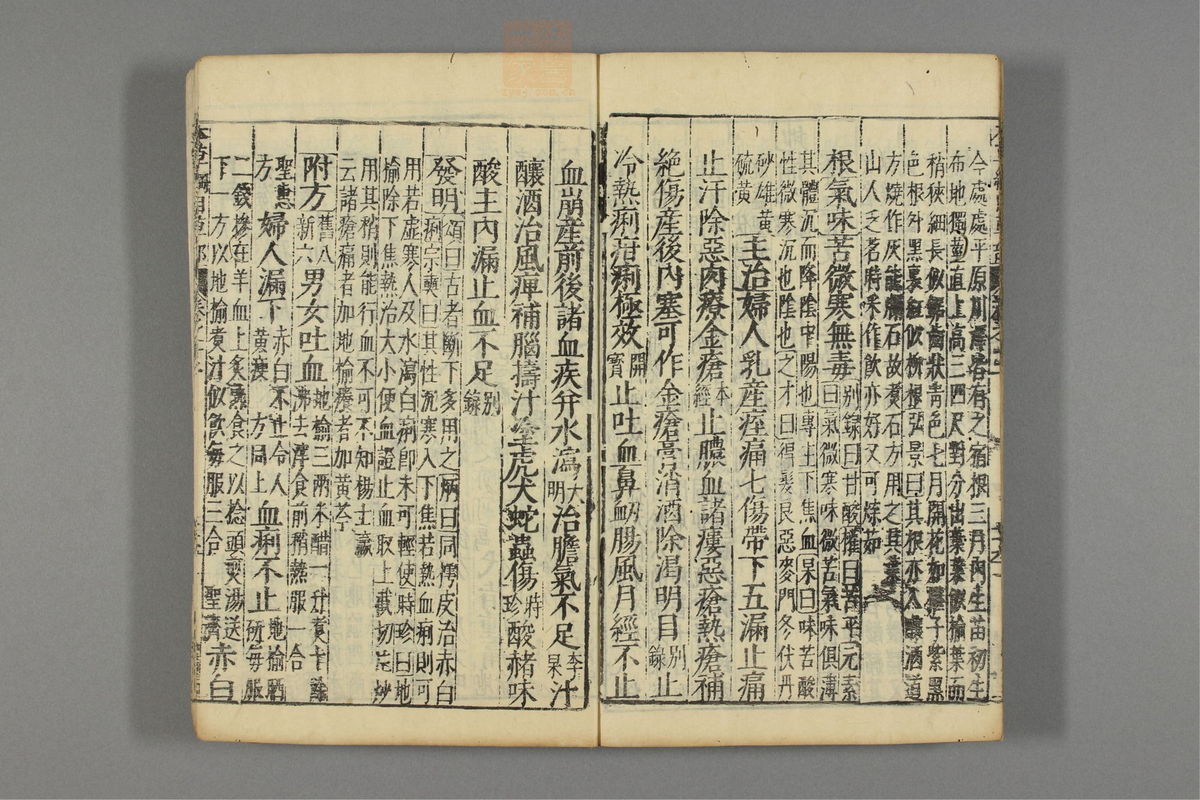 今處處平原川澤皆有之宿根三月內生苗初生
布地獨莖直上高三四尺對分出葉葉似榆葉而
稍狹細長似鋸齒狀青色七月開花如椹子紫黑
色根外黑裏紅似柳根弘景曰其根亦入釀酒道
方燒作灰能爛石故煮石方用之其葉
山人乏茗時采作飲亦好又可煠茹
根氣味苦微寒無毒別錄曰甘酸權曰苦平元素
曰氣微寒味微苦氣味俱薄
其體沉而降陰中陽也專主下焦血杲曰味苦酸
性微寒沉也陰也之才曰得髮良惡麥門冬伏丹
砂雄黃
硫黃
主治婦人乳產痓痛七傷帶下五漏止痛
止汗除惡肉療金瘡本經止膿血諸瘻惡瘡熱瘡補
絕傷產後內塞可作金瘡膏消酒除渴明目別錄止
冷熱痢疳痢極效開寶止吐血鼻衄腸風月經不止
血崩產前後諸血疾并水瀉大明治膽氣不足李杲汁
釀酒治風痺補腦擣汁塗虎犬蛇蟲傷時珍酸赭味
酸主內漏止血不足別錄
發明頌曰古者斷下多用之炳曰同樗皮治赤白
痢宗奭曰其性沉寒入下焦若熱血痢則可
用若虛寒人及水瀉白痢即未可輕使時珍曰地
榆除下焦熱治大小便血證止血取上截切片炒
用其梢則能行血不可不知楊士瀛
云諸瘡痛者加地榆癢者加黃芩
附方舊八
新六男女吐血地榆三兩米醋一升煮十
沸去滓食前稍熱服一合
聖惠
方婦人漏下赤白不止令人
黃瘦方同上血痢不止地榆晒
研每服
二錢摻在羊血上炙熟食之以捻頭煎湯送
下一方以地榆煮汁似飲每服三合聖濟赤白